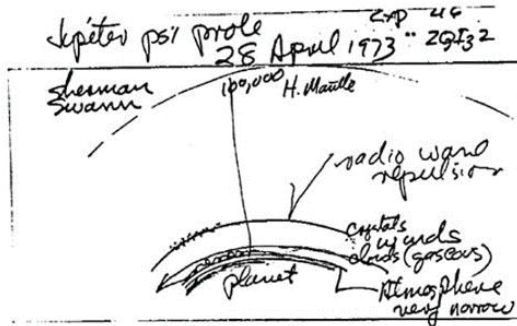 Jupiter psi probe
Exp 46
28 April 1973
Sherman
Swann
100,000 H. Mantle
radio wave
repulsion
crystals
winds
clouds (gaseous)
planet
Atmosphere
very narrow